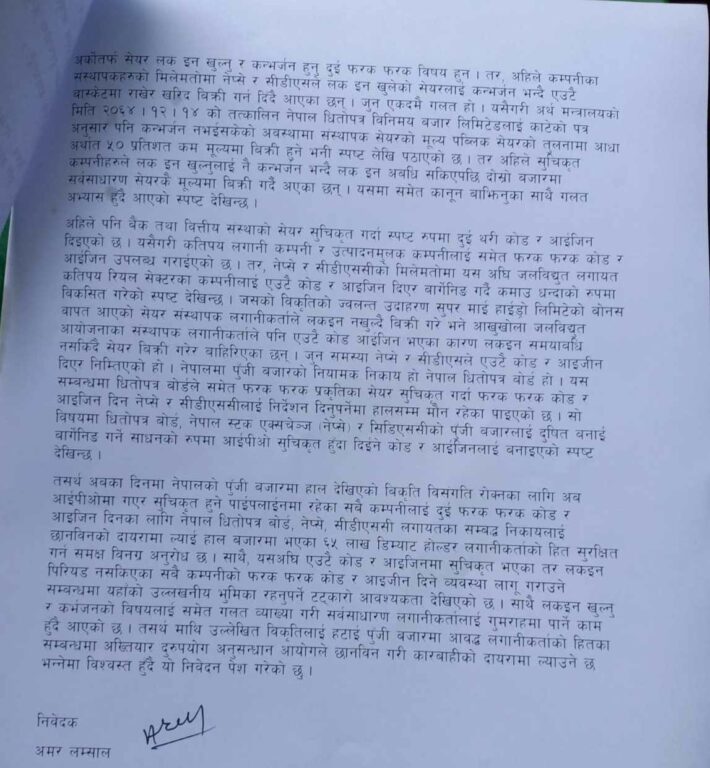 अर्कोतर्फ सेयर लक इन खुल्नु र कन्भर्जन हुनु दुई फरक फरक विषय हुन । तर, अहिले कम्पनीका
संस्थापकहरुको मिलेमतोमा नेप्से र सीडीएसले लक इन खुलेको सेयरलाई कन्भर्जन भन्दै एउटै
वास्केटमा राखेर खरिद बिक्री गर्न दिदै आएका छन् । जुन एकदमै गलत हो । यसैगरी अर्थ मन्त्रालयको
मिति २०६४ । १२ । १४ को तत्कालिन नेपाल धितोपत्र विनिमय बजार लिमिटेडलाई काटेको पत्र
अनुसार पनि कन्भर्जन नभईसकेको अवस्थामा संस्थापक सेयरको मूल्य पब्लिक सेयरको तुलनामा आधा
अर्थात ५० प्रतिशत कम मूल्यमा बिक्री हुने भनी स्पष्ट लेखि पठाएको छ । तर अहिले सुचिकृत
कम्पनीहरुले लक इन खुल्नुलाई नै कन्भर्जन भन्दै लक इन अवधि सकिएपछि दोस्रो बजारमा
सर्वसाधारण सेयरकै मूल्यमा बिक्री गर्दै अएका छन् । यसमा समेत कानून बाझिनुका साथै गलत
अभ्यास हुँदै आएको स्पष्ट देखिन्छ ।
अहिले पनि बैंक तथा वित्तीय संस्थाको सेयर सुचिकृत गर्दा स्पष्ट रुपमा दुई थरी कोड र आइजिन
दिइएको छ । यसैगरी कतिपय लगानी कम्पनी र उत्पादनमुलक कम्पनीलाई समेत फरक फरक कोड र
आइजिन उपलब्ध गराईएको छ । तर, नेप्से र सीडीएससीको मिलेमतोमा यस अघि जलविद्युत लगायत
कतिपय रियल सेक्टरका कम्पनीलाई एउटै कोड र आइजिन दिएर बार्गेनिङ गर्दै कमाउ धन्दाको रुपमा
विकसित गरेको स्पष्ट देखिन्छ । जसको विकृतिको ज्वलन्त उदाहरण सुपर माई हाईड्रो लिमिटेको बोनस
वापत आएको सेयर संस्थापक लगानीकर्ताले लकइन नखुल्दै बिक्री गरे भने आखुखोला जलविद्युत
आयोजनाका संस्थापक लगानीकर्ताले पनि एउटै कोड आइजिन भएका कारण लकइन समयावधि
नसकिदै सेयर बिक्री गरेर बाहिरिएका छन् । जुन समस्या नेप्से र सीडीएसले एउटै कोड र आइजीन
दिएर निम्तिएको हो । नेपालमा पुँजी बजारको नियामक निकाय हो नेपाल धितोपत्र बोर्ड हो । यस
सम्बन्धमा धितोपत्र बोर्डले समेत फरक फरक प्रकृतिका सेयर सुचिकृत गर्दा फरक फरक कोड र
आइजिन दिन नेप्से र सीडीएससीलाई निर्देशन दिनुपर्नेमा हालसम्म मौन रहेका पाइएको छ । सो
विषयमा धितोपत्र बोर्ड, नेपाल स्टक एक्सचेञ्ज (नेप्से) र सिडिएससीको पुँजी बजारलाई दुषित बनाई
बार्गेनिङ गर्ने साधनको रुपमा आईपीओ सुचिकृत हुँदा दिइने कोड र आइजिनलाई बनाइएको स्पष्ट
देखिन्छ ।
तसर्थ अबका दिनमा नेपालको पुँजी बजारमा हाल देखिएको बिकृति विसंगति रोक्नका लागि अब
आईपीओमा गएर सुचिकृत हुने पाइपलाईनमा रहेका सबै कम्पनीलाई दुई फरक फरक कोड र
आइजिन दिनका लागि नेपाल धितोपत्र बोर्ड, नेप्से, सीडीएससी लगायतका सम्बद्ध निकायलाई
छानविनको दायरामा ल्याई हाल बजारमा भएका ६५ लाख डिम्याट होल्डर लगानीकर्ताको हित सुरक्षित
गर्न समक्ष विनम्र अनुरोध छ । साथै, यसअघि एउटै कोड र आइजिनमा सुचिकृत भएका तर लकइन
पिरियड नसकिएका सबै कम्पनीको फरक फरक कोड र आइजीन दिने व्यवस्था लागू गराउने
सम्बन्धमा यहाँको उल्लखनीय भुमिका रहनुपर्ने टट्कारो आवश्यकता देखिएको छ । साथै लकइन खुल्नु
र कर्भजनको विषयलाई समेत गलत व्याख्या गरी सर्वसाधारण लगानीकर्तालाई गुमराहमा पार्ने काम
हुँदै आएको छ । तसर्थ माथि उल्लेखित विकृतिलाई हटाई पुँजी बजारमा आवद्ध लगानीकर्ताको हितका
सम्बन्धमा अख्तियार दुरुपयोग अनुसन्धान आयोगले छानविन गरी कारबाहीको दायरामा ल्याउने छ
भन्नेमा विश्वस्त हुँदै यो निवेदन पेश गरेको छु ।
निवेदक
अमर लम्साल